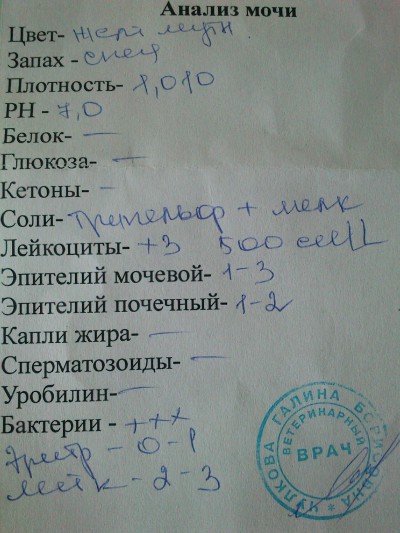 Анализ мочи
Цвет- желт мутн
Запах - спец
Плотность- 1,010
PH - 7,0
Белок- —
Глюкоза- —
Кетоны- –
Соли- трипельф + мелк
Лейкоциты- +3 500 cell/L
Эпителий мочевой- 1-3
Эпителий почечный- 1-2
Капли жира- —
Сперматозоиды- —
Уробилин- —
Бактерии - +++
Эритр - 0-1
лейк - 2-3
ЧУЛКОВА ГАЛИНА БОРИСОВНА
ВЕТЕРИНАРНЫЙ
ВРАЧ